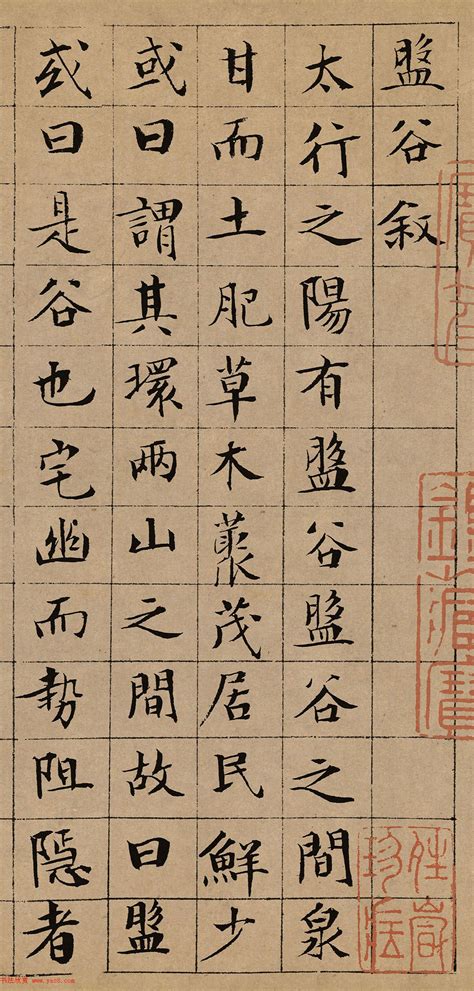 盤谷叙
太行之陽有盤谷盤谷之間泉
甘而土肥草木藂茂居民鮮少
或曰謂其環兩山之間故曰盤
或曰是谷也宅幽而勢阻隱者
书法欣赏 www.yac8.com